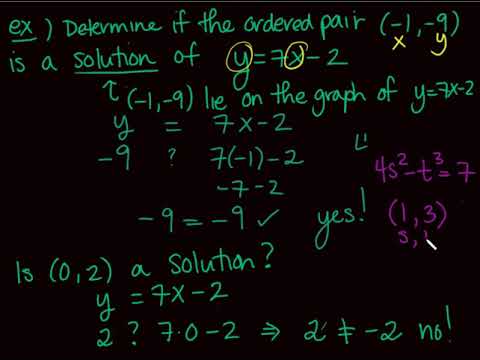 ex) Determine if the ordered pair (-1,-9)
x y
is a solution of y=7x-2
(-1,-9) lie on the graph of y=7x-2
y = 7x-2
-9 ? 7(-1)-2
-7-2
-9 = -9 ✓ yes!
4s²-t³=7
(1,3)
s,
Is (0,2) a solution?
y = 7x-2
2 ? 7·0-2 ⇒ 2 ≠ -2 no!